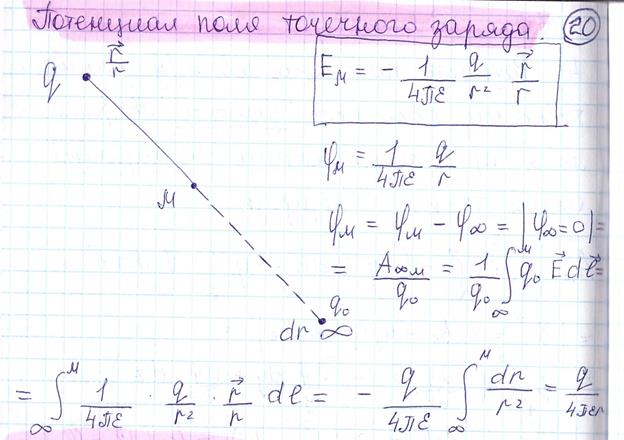 Потенциал поля точечного заряда. 20
q r⃗/r
E_M = - 1/4πε q/r² r⃗/r
φ_M = 1/4πε q/r
M
φ_M = φ_M - φ_∞ = |φ_∞=0| =
= A_∞M/q₀ = 1/q₀ ∫_∞^M q₀ E⃗ dℓ⃗ =
q₀
dr ∞
= ∫_∞^M 1/4πε · q/r² · r⃗/r dℓ = - q/4πε ∫_∞^M dr/r² = q/4πεr